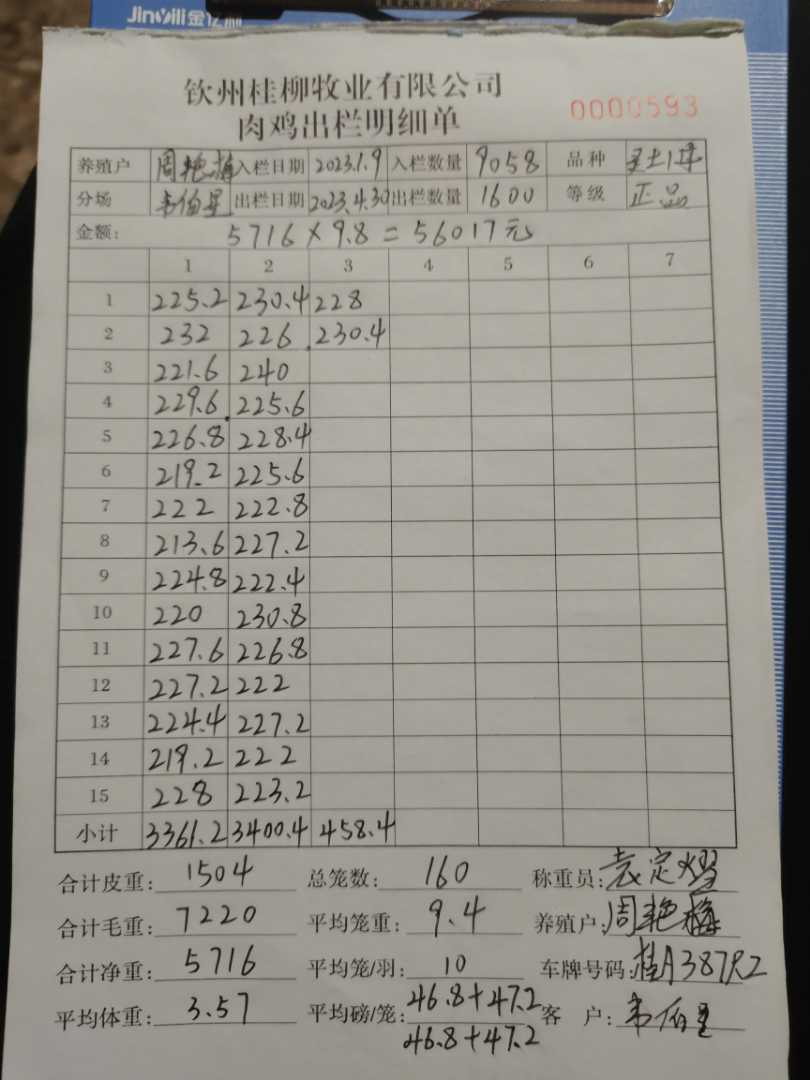 Jinyili 金亿利
钦州桂柳牧业有限公司
0000593
肉鸡出栏明细单
养殖户 周艳梅 入栏日期 2023.1.9 入栏数量 9058 品种
分场 韦伯星 出栏日期 2023.4.30 出栏数量 1600 等级 正品
金额: 5716×9.8=56017元
1 2 3 4 5 6 7
1 225.2 230.4 228
2 232 226 230.4
3 221.6 240
4 229.6 225.6
5 226.8 228.4
6 219.2 225.6
7 222 222.8
8 213.6 227.2
9 224.8 222.4
10 220 230.8
11 227.6 226.8
12 227.2 222
13 224.4 227.2
14 219.2 222
15 228 223.2
小计 3361.2 3400.4 458.4
合计皮重: 1504 总笼数: 160 称重员: 袁定
合计毛重: 7220 平均笼重: 9.4 养殖户: 周艳梅
合计净重: 5716 平均笼/羽: 10 车牌号码: 桂A387R2
平均体重: 3.57 平均磅/笼: 46.8+47.2 客 户: 韦伯星
46.8+47.2